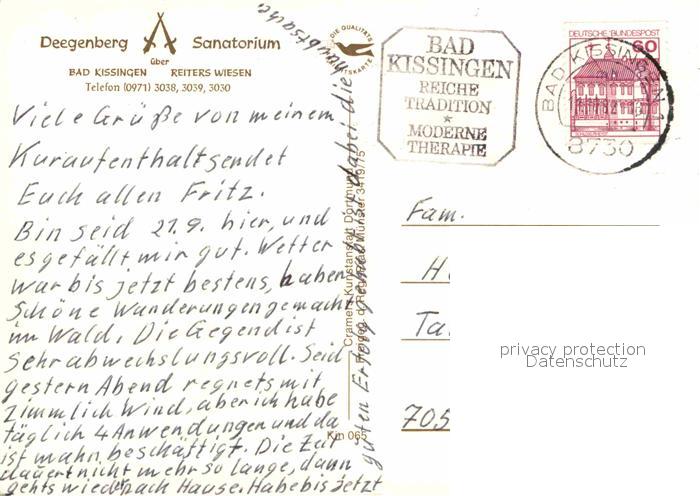 Deegenberg Sanatorium
über
BAD KISSINGEN REITERS WIESEN
Telefon (0971) 3038, 3039, 3030
Viele Grüße von meinem
Kuraufenthalt sendet
Euch allen Fritz.
Bin seid 21.9. hier, und
es gefällt mir gut. Wetter
war bis jetzt bestens, haben
schöne Wanderungen gemacht
im Wald. Die Gegend ist
sehr abwechslungsvoll. Seid
gestern Abend regnets mit
zimmlich Wind, aber ich habe
täglich 4 Anwendungen und da
ist mahn beschäftigt. Die Zeit
dauert nicht mehr so lange, dann
gehts wieder nach Hause. Habe bis jetzt
guten Erfolg gehabt, dabei die
Hauptsache.
Km 065
Cramers Kunstanstalt Dortmund
DIE QUALITÄTS
BAD
KISSINGEN
REICHE
TRADITION
*
MODERNE
THERAPIE
DEUTSCHE BUNDESPOST
60
BAD KISSINGEN 1
mb
8730
Fam.
H
Ta
705
privacy protection
Datenschutz